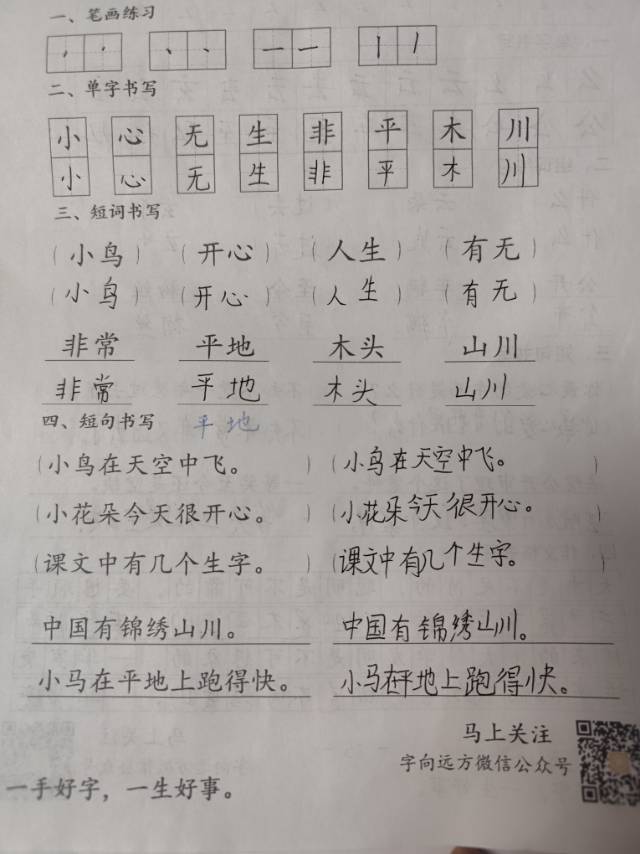 一、笔画练习
二、单字书写
小 心 无 生 非 平 木 川
小 心 无 生 非 平 木 川
三、短词书写
（小鸟）（开心）（人生）（有无）
（小鸟）（开心）（人生）（有无）
非常 平地 木头 山川
非常 平地 木头 山川
四、短句书写 平地
（小鸟在天空中飞。 ）（小鸟在天空中飞。 ）
（小花朵今天很开心。 ）（小花朵今天很开心。 ）
（课文中有几个生字。 ）（课文中有几个生字。 ）
中国有锦绣山川。 中国有锦绣山川。
小马在平地上跑得快。 小马在平地上跑得快。
马上关注
字向远方微信公众号
一手好字，一生好事。